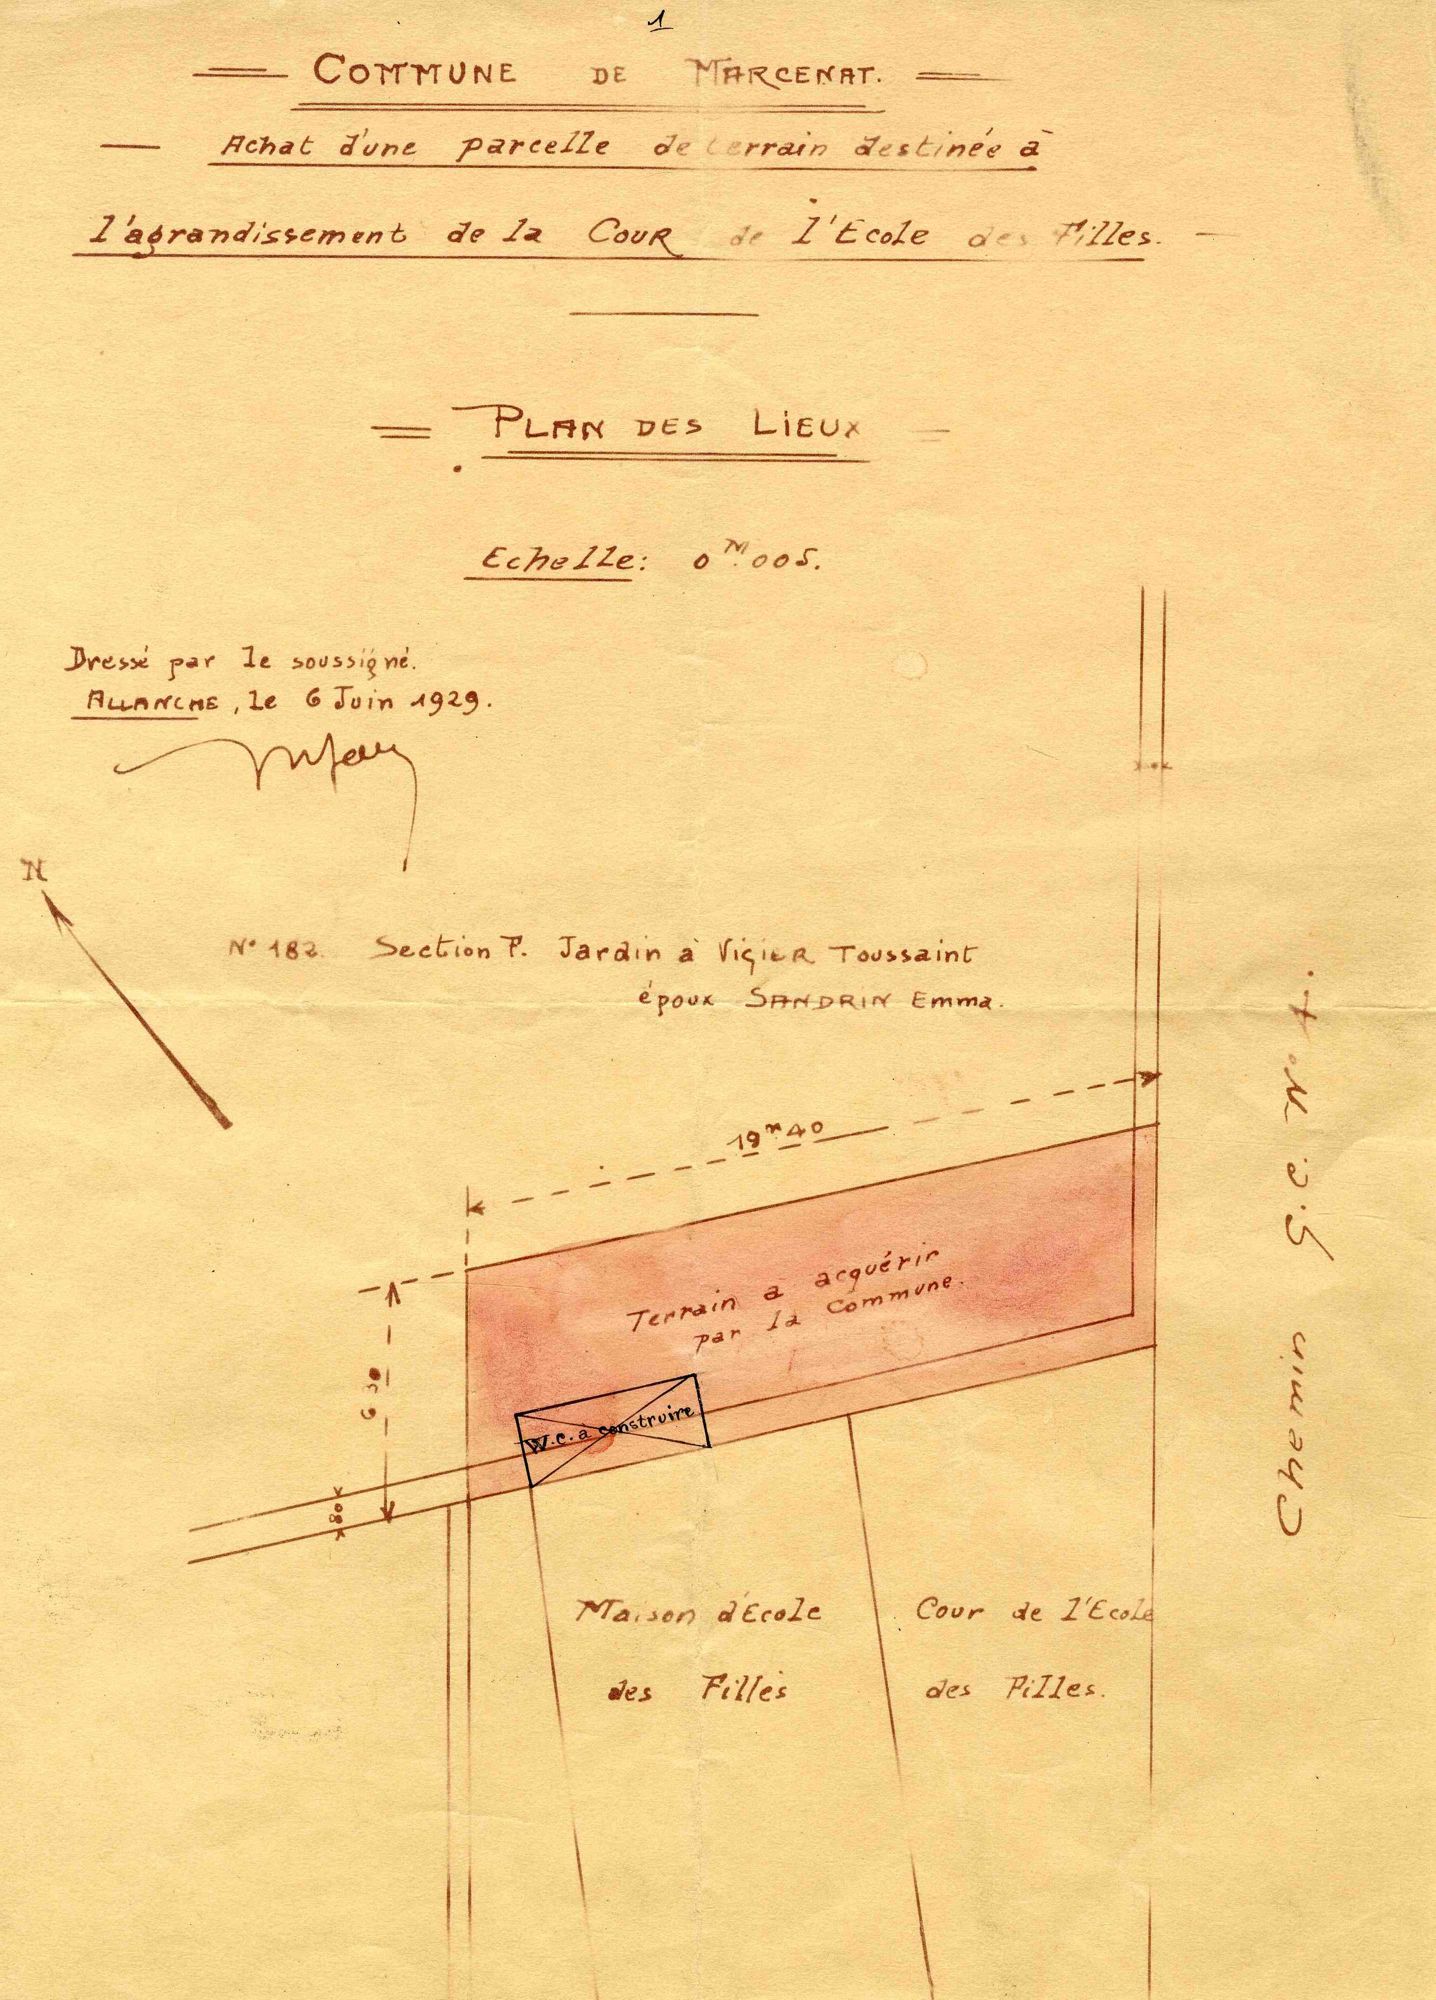 1
COMMUNE DE MARCENAT.
Achat d'une parcelle de terrain destinée à
l'agrandissement de la Cour de l'Ecole des Filles.
PLAN DES LIEUX
Echelle: 0M.005.
Dressé par le soussigné.
ALLANCHE, le 6 Juin 1929.
N
N° 182. Section F. Jardin à VIGIER Toussaint
époux SANDRIN Emma.
19m40
Terrain a acquérir
par la Commune.
6 30
W.c. à construire
80
Chemin G.C. N° 4.
Maison d'Ecole
des Filles
Cour de l'Ecole
des Filles.